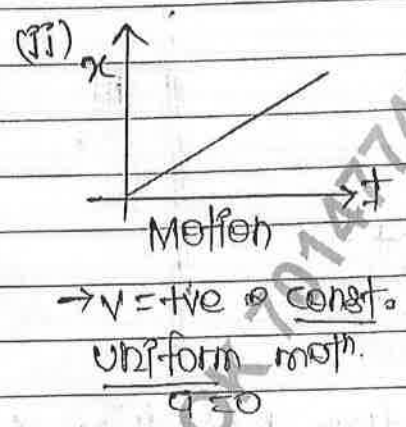 (II)
x
t
Motion
→ V = +ve & const.
uniform motn.
a = 0